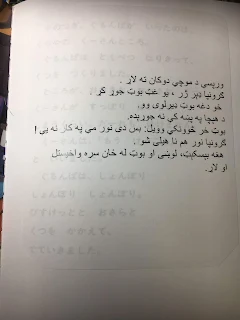 وریسی د موچي دوکان ته لاړ.
ګرونیا ډېر ژر ، یو غټ بوټ جوړ کړ
خو دغه بوټ ډېرلوی وو.
د هیچا په پښه کې نه جوړېده.
بوټ خر څوونکي وویل: بس دی نور مې په کار نه یې !
ګرونیا نور هم نا هیلی شو.
هغه بیسکیټ، لوښی او بوټ له ځان سره واخیستل
او لاړ.